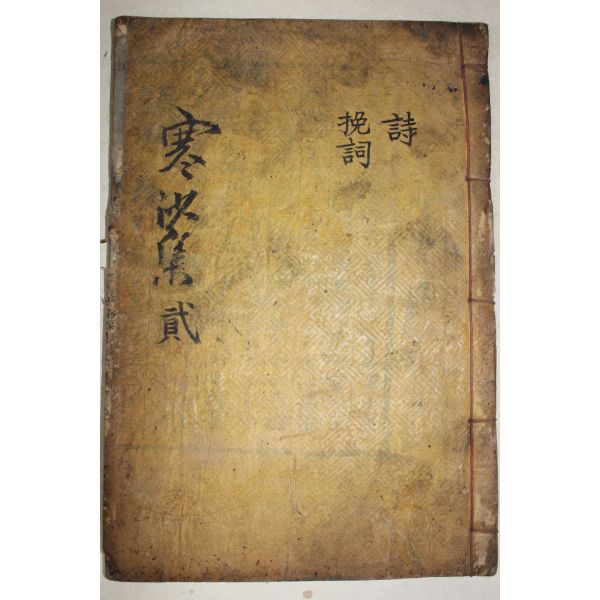 詩
挽詞
寒沙集 貳